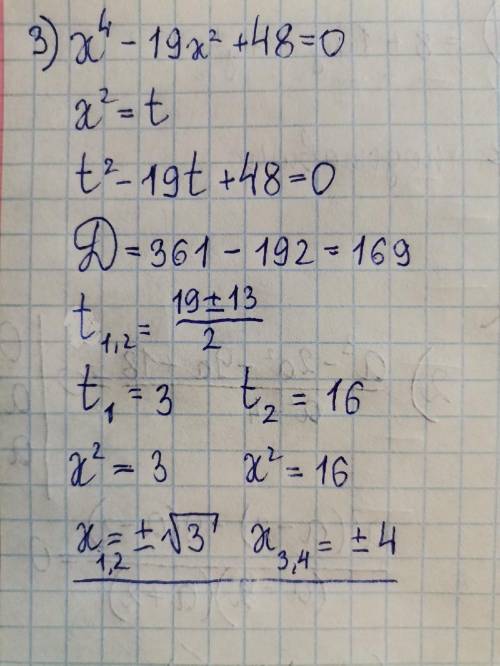 3) x⁴ - 19x² + 48 = 0
x² = t
t² - 19t + 48 = 0
Д = 361 - 192 = 169
t₁,₂ = (19 ± 13) / 2
t₁ = 3 t₂ = 16
x² = 3 x² = 16
x₁,₂ = ± √3 x₃,₄ = ± 4